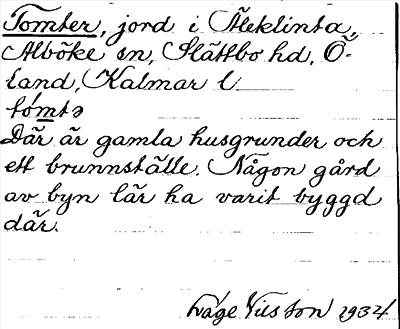 Tomter, jord i Äleklinta,
Alböke sn, Slättbo hd, Ö-
land, Kalmar l
tómtə
Där är gamla husgrunder och
ett brunnställe. Någon gård
av byn lär ha varit byggd
där.
Låge Nilsson 1934